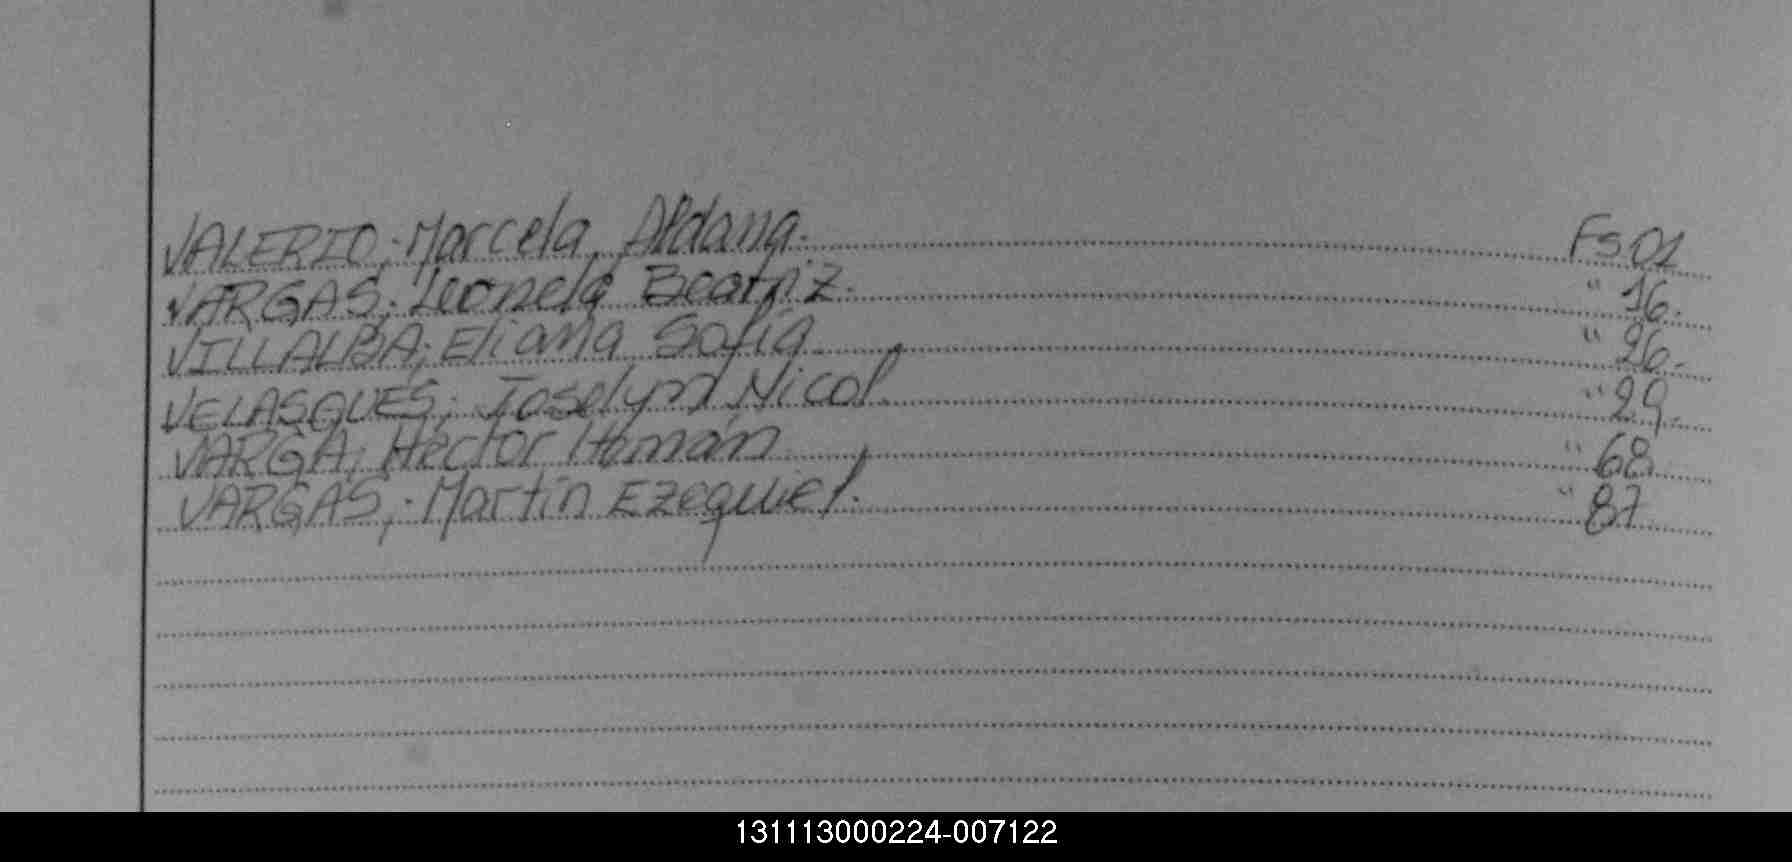 VALERIO; Marcela Aldana. Fs 01
VARGAS; Leonela Beatriz. " 16.
VILLALBA; Eliana Sofia " 26.
VELASQUES; Joselyn Nicol " 29.
VARGA; Hector Hernán " 68
VARGAS; Martín Ezequiel. " 87
131113000224-007122